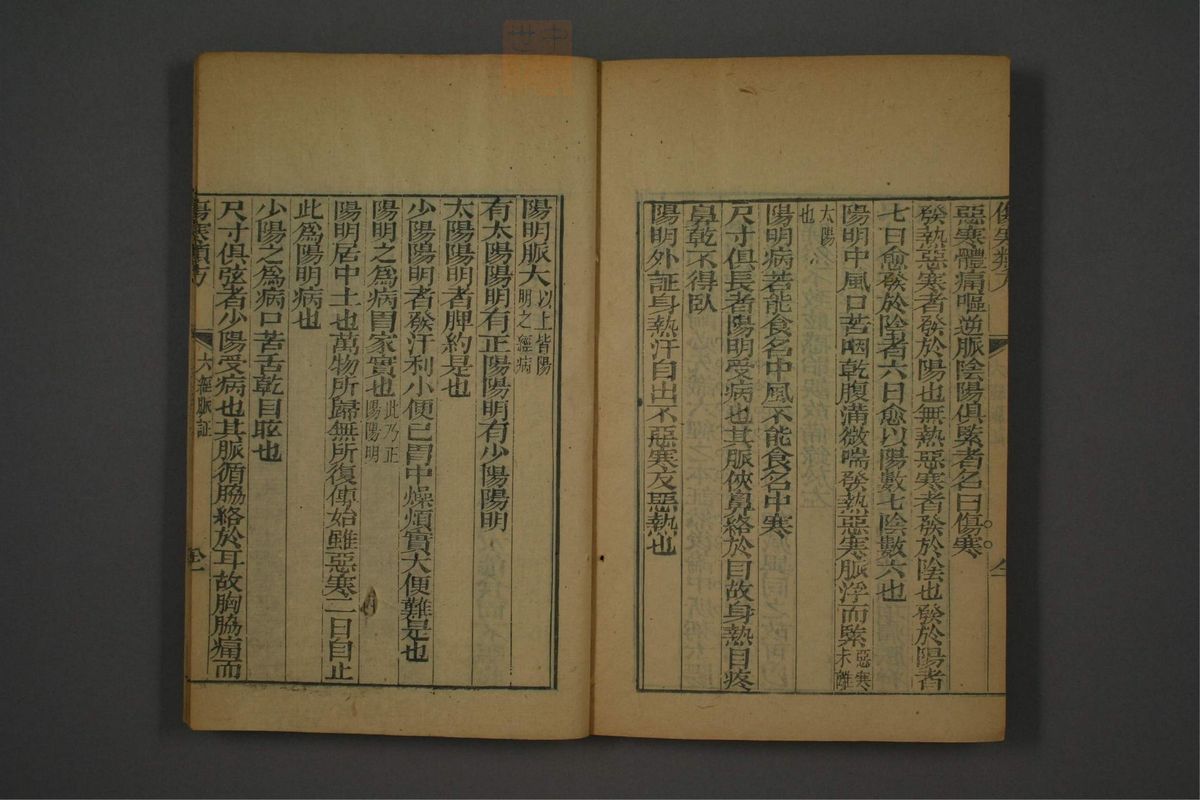 惡寒體痛嘔逆脈陰陽俱緊者名曰傷寒
發熱惡寒者發於陽也無熱惡寒者發於陰也發於陽者
七日愈發於陰者六日愈以陽數七陰數六也
陽明中風口苦咽乾腹滿微喘發熱惡寒脈浮而緊惡寒未離
太陽也
陽明病若能食名中風不能食名中寒
尺寸俱長者陽明受病也其脈俠鼻絡於目故身熱目疼
鼻乾不得臥
陽明外証身熱汗自出不惡寒反惡熱也
陽明脈大以上皆陽明之經病
有太陽陽明有正陽陽明有少陽陽明
太陽陽明者脾約是也
少陽陽明者發汗利小便已胃中燥煩實大便難是也
陽明之為病胃家實也此乃正陽陽明
陽明居中土也萬物所歸無所復傳始雖惡寒二日自止
此為陽明病也
少陽之為病口苦舌乾目眩也
尺寸俱弦者少陽受病也其脈循脇絡於耳故胸脇痛而
傷寒類方
六經脈証